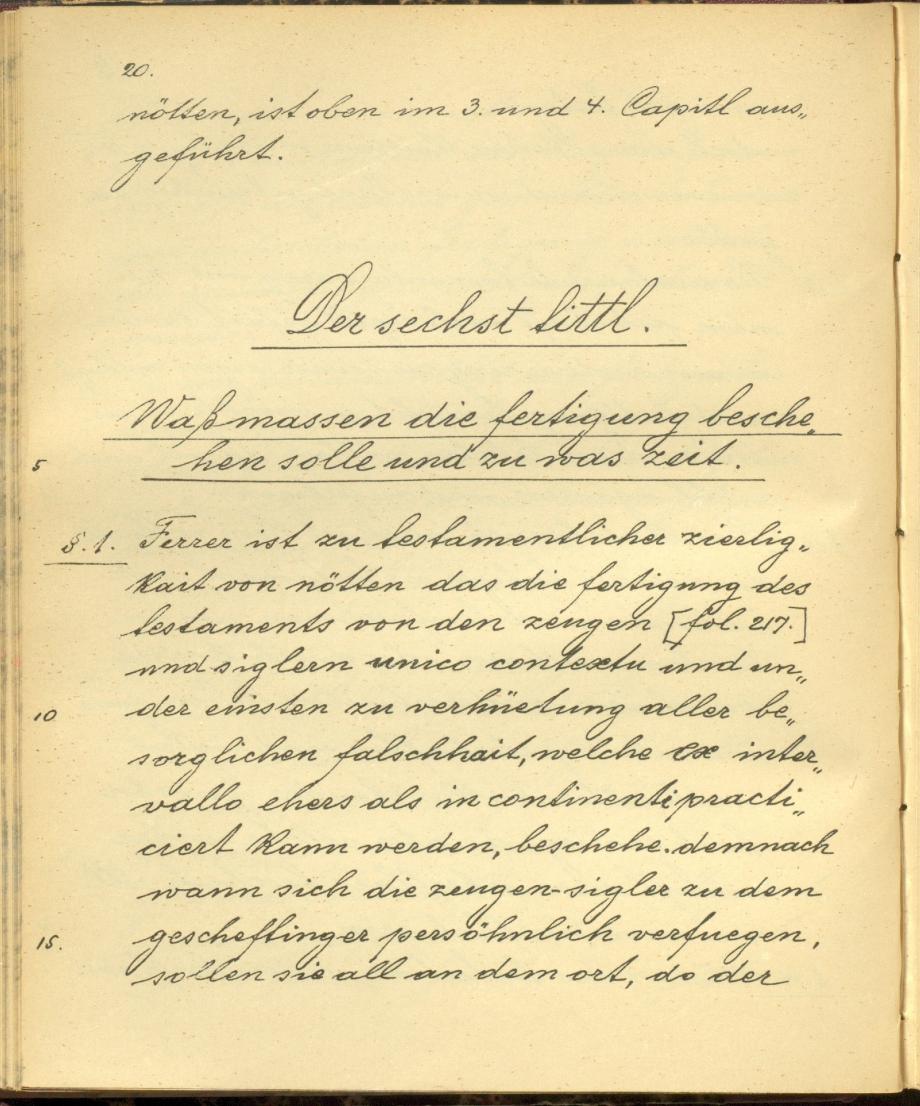 20.
nötten, ist oben im 3. und 4. Capitl aus„
geführt.
Der sechst tittl.
Waßmassen die fertigung besche„
5 hen solle und zu was zeit.
§. 1. Ferrer ist zu testamentlicher zierlig„
kait von nötten das die fertigung des
testaments von den zeugen [fol. 217.]
und siglern unico contextu und un„
10 der einsten zu verhüetung aller be„
sorglichen falschhait, welche ex inter„
vallo ehers als in continenti practi„
ciert kann werden, beschehe. demnach
wann sich die zeugen-sigler zu dem
15. gescheftinger persöhnlich verfuegen,
sollen sie all an dem ort, do der